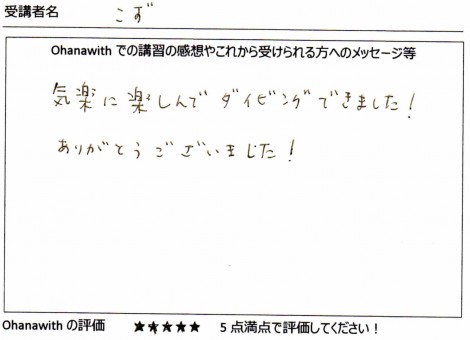 受講者名 こず
Ohanawith での講習の感想やこれから受けられる方へのメッセージ等
気楽に楽しんでダイビングできました！
ありがとうございました！
Ohanawith の評価 ★★★★★ 5 点満点で評価してください！